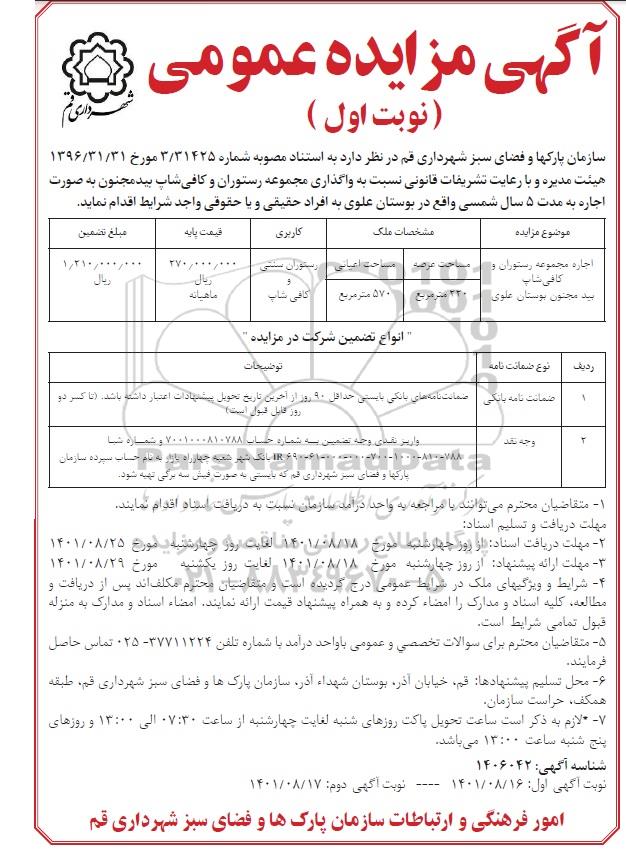 آگهی مزایده عمومی
( نوبت اول )
شهرداری قم
سازمان پارکها و فضای سبز شهرداری قم در نظر دارد به استناد مصوبه شماره ۳/۳۱۴۲۵ مورخ ۱۳۹۶/۳۱/۳۱
هیئت مدیره و با رعایت تشریفات قانونی نسبت به واگذاری مجموعه رستوران و کافی‌شاپ بیدمجنون به صورت
اجاره به مدت ۵ سال شمسی واقع در بوستان علوی به افراد حقیقی و یا حقوقی واجد شرایط اقدام نماید.
موضوع مزایده مشخصات ملک کاربری قیمت پایه مبلغ تضمین
اجاره مجموعه رستوران و کافی‌شاپ بید مجنون بوستان علوی
مساحت عرصه مساحت اعیانی
۲۲۰ مترمربع ۵۷۰ مترمربع
رستوران سنتی و کافی شاپ
۲۷۰/۰۰۰/۰۰۰ ریال ماهیانه
۱/۲۱۰/۰۰۰/۰۰۰ ریال
" انواع تضمین شرکت در مزایده "
ردیف نوع ضمانت نامه توضیحات
۱ ضمانت نامه بانکی ضمانت‌نامه‌های بانکی بایستی حداقل ۹۰ روز از آخرین تاریخ تحویل پیشنهادات اعتبار داشته باشد. (تا کسر دو
روز قابل قبول است)
۲ وجه نقد واریز نقدی وجه تضمین به شماره حساب ۷۰۰۱۰۰۰۸۱۰۷۸۸ و شماره شبا
IR ۶۹۰-۶۱۰-۰۰۰-۰۰۰-۷۰۰-۱۰۰۰-۸۱۰-۷۸۸ بانک شهر شعبه چهارراه بازار به نام حساب سپرده سازمان
پارکها و فضای سبز شهرداری قم که بایستی به صورت فیش سه برگی تهیه شود.
۱- متقاضیان محترم می‌توانند با مراجعه به واحد درآمد سازمان نسبت به دریافت اسناد اقدام نمایند.
مهلت دریافت و تسلیم اسناد:
۲- مهلت دریافت اسناد: از روز چهارشنبه مورخ ۱۴۰۱/۰۸/۱۸ لغایت روز چهارشنبه مورخ ۱۴۰۱/۰۸/۲۵
۳- مهلت ارائه پیشنهاد: از روز چهارشنبه مورخ ۱۴۰۱/۰۸/۱۸ لغایت روز یکشنبه مورخ ۱۴۰۱/۰۸/۲۹
۴- شرایط و ویژگیهای ملک در شرایط عمومی درج گردیده است و متقاضیان محترم مکلف‌اند پس از دریافت و
مطالعه، کلیه اسناد و مدارک را امضاء کرده و به همراه پیشنهاد قیمت ارائه نمایند. امضاء اسناد و مدارک به منزله
قبول تمامی شرایط است.
۵- متقاضیان محترم برای سوالات تخصصی و عمومی باواحد درآمد با شماره تلفن ۳۷۷۱۱۲۲۴- ۰۲۵ تماس حاصل
فرمایند.
۶- محل تسلیم پیشنهادها: قم، خیابان آذر، بوستان شهداء آذر، سازمان پارک ها و فضای سبز شهرداری قم، طبقه
همکف، حراست سازمان.
۷- *لازم به ذکر است ساعت تحویل پاکت روزهای شنبه لغایت چهارشنبه از ساعت ۰۷:۳۰ الی ۱۳:۰۰ و روزهای
پنج شنبه ساعت ۱۳:۰۰ می‌باشد.
شناسه آگهی: ۱۴۰۶۰۴۲
نوبت آگهی اول: ۱۴۰۱/۰۸/۱۶ ---- نوبت آگهی دوم: ۱۴۰۱/۰۸/۱۷
امور فرهنگی و ارتباطات سازمان پارک ها و فضای سبز شهرداری قم
ParsNamadData